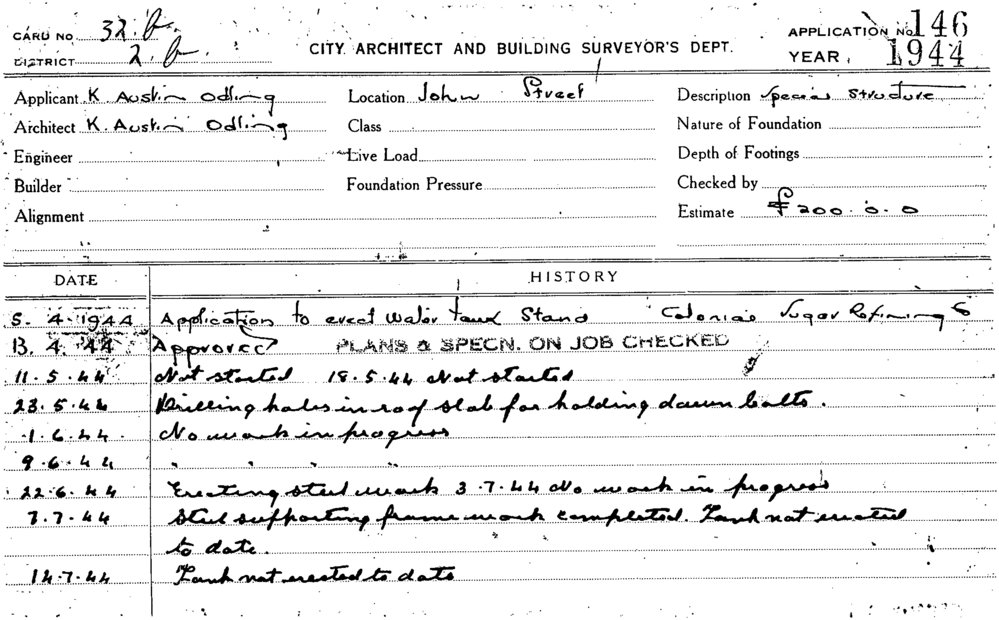 CARD NO 32.B. APPLICATION No 146
DISTRICT 2.B. CITY ARCHITECT AND BUILDING SURVEYOR'S DEPT. YEAR 1944
Applicant K Austin Odling Location John Street Description Special Structure
Architect K. Austin Odling Class Nature of Foundation
Engineer Live Load Depth of Footings
Builder Foundation Pressure Checked by
Alignment Estimate £200.0.0
DATE HISTORY
5. 4. 1944 Application to erect Water Tank Stand Colonial Sugar Refining Co
13. 4. 44 Approved PLANS & SPECN. ON JOB CHECKED
11.5.44 Not started 18.5.44 Not started
23.5.44 Drilling holes in roof slab for holding down bolts.
1.6.44 No work in progress
9.6.44 " " " "
22.6.44 Erecting steel work 3.7.44 No work in progress
7.7.44 Steel supporting frame work completed. Tank not erected
to date.
14.7.44 Tank not erected to date